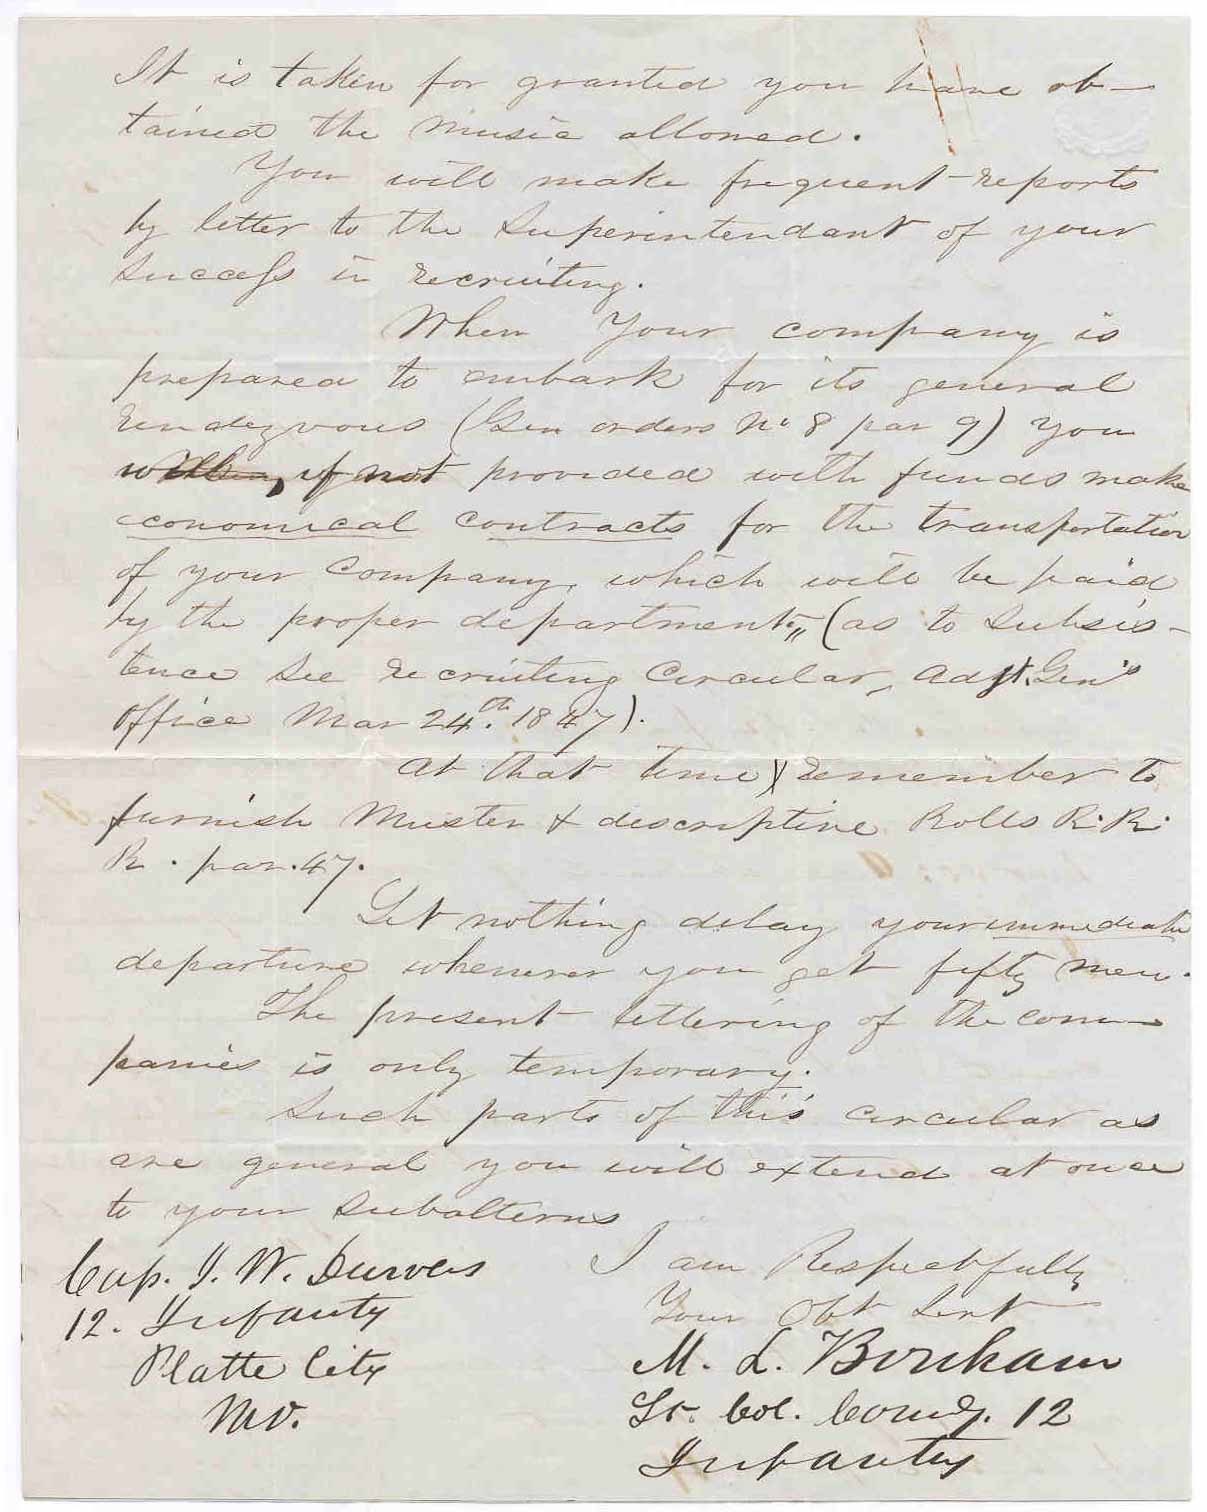 It is taken for granted you have ob-
tained the music allowed.
You will make frequent reports
by letter to the Superintendant of your
success in recruiting.
When Your company is
prepared to embark for its general
rendezvous (Gen orders No 8 par 9) You
will, if not provided with funds make
economical contracts for the transportation
of your company, which will be paid
by the proper department", (as to Subsis-
tence See recruiting Circular, Adjt. Gen's
office Mar 24th. 1847).
At that time remember to
furnish Muster & descriptive Rolls R. R.
R. par. 47.
Let nothing delay your immediate
departure whenever you get fifty men.
The present lettering of the com-
panies is only temporary.
Such parts of this circular as
are general you will extend at once
to your Subalterns
I am Respectfully
Your Obt Servt
M. L. Bonham
Lt. Col. Comdg. 12
Infantry
Cap. J. W.
12. Infantry
Platte City
Mo.